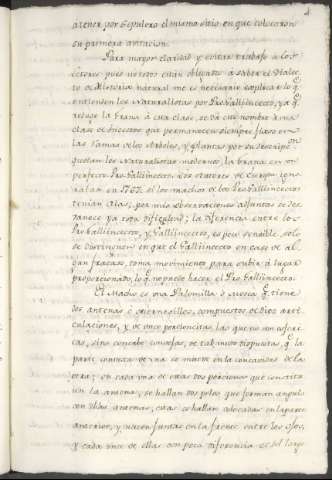 atener por sepulcro el mismo sitio en que colocaron
su primera mancion.
Para mayor claridad y evitar trabajo a los
letores pues no todos estan obligados a saber el Dialec
to de Historia natural me es necesario esplicar lo q.
entienden los Naturalistas por Pro Gallinsecto, ya q.
reduje la Grana à esta clase, se dà este nombre à una
clase de Insectos que permanecen siempre fixos en
las Ramas de los Arboles, y plantas por su
los Naturalistas modernos, la grana
perfecto Pro Gallinsecto. Los Autores de Europa
en 1767. si los machos de los Pro Gallinsectos
tenian Alas; por mis observaciones adjuntas se des
vanece ya toda dificultad; la diferencia entre los
Pro Gallinsectos, y Gallinsectos, es poco sensible, solo
se distinguen en que el Gallinsecto en caso de al
gun fracaso, toma movimiento para subir à lugar
proporcionado, lo q. no puede hacer el Pro Gallinsecto.
El Macho es una Palomilla ò Mosca q. tiene
dos antenas ò cuernesillos, compuestos de diez arti
culaciones, y de once porcioncitas, las que no son esferi
cas, sino concabo convexas, de tal modo dispuestas, q. la
parte convexa de una se mueve en la concavidad de la
otra; en cada una de estas dos porciones que constitu
ien la antena, se hallan dos pelos, que forman angulo
con dichas antenas; estas se hallan colocadas en la parte
anterior, y nacen juntas en la frente entre los ojos,
y cada una de ellas con poca diferencia es del largo